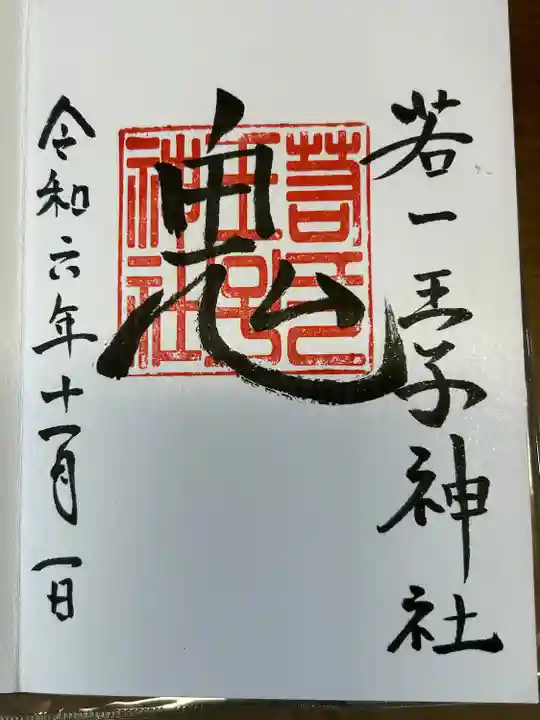 若一王子神社
鬼
王子
神社
令和六年十一月一日